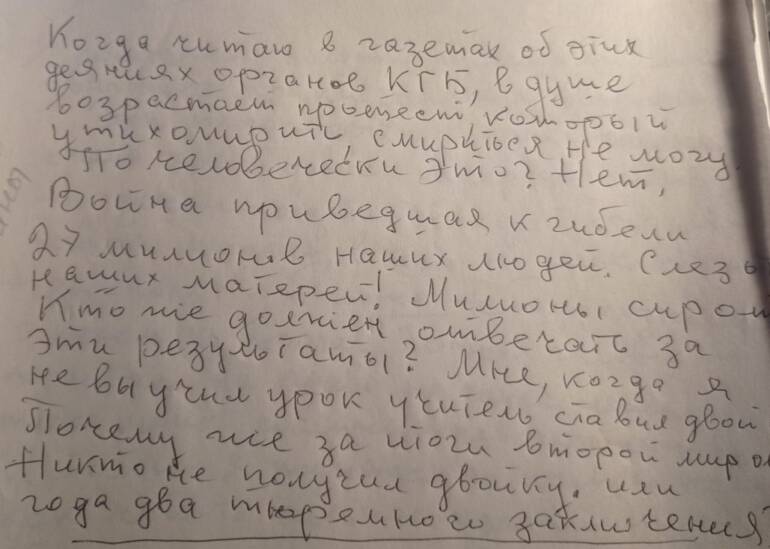 Когда читаю в газетах об этих
деяниях органов КГБ, в душе
возрастает протест, который
утихомирить, смириться не могу.
По человечески это? Нет,
Война приведшая к гибели
27 милионов наших людей. Слезы
наших матерей! Милионы сирот
Кто же должен отвечать за
Эти результаты? Мне, когда я
не выучил урок учитель ставил двой
Почему же за итоги второй миро
Никто не получил двойку. или
года два тюремного заключения?